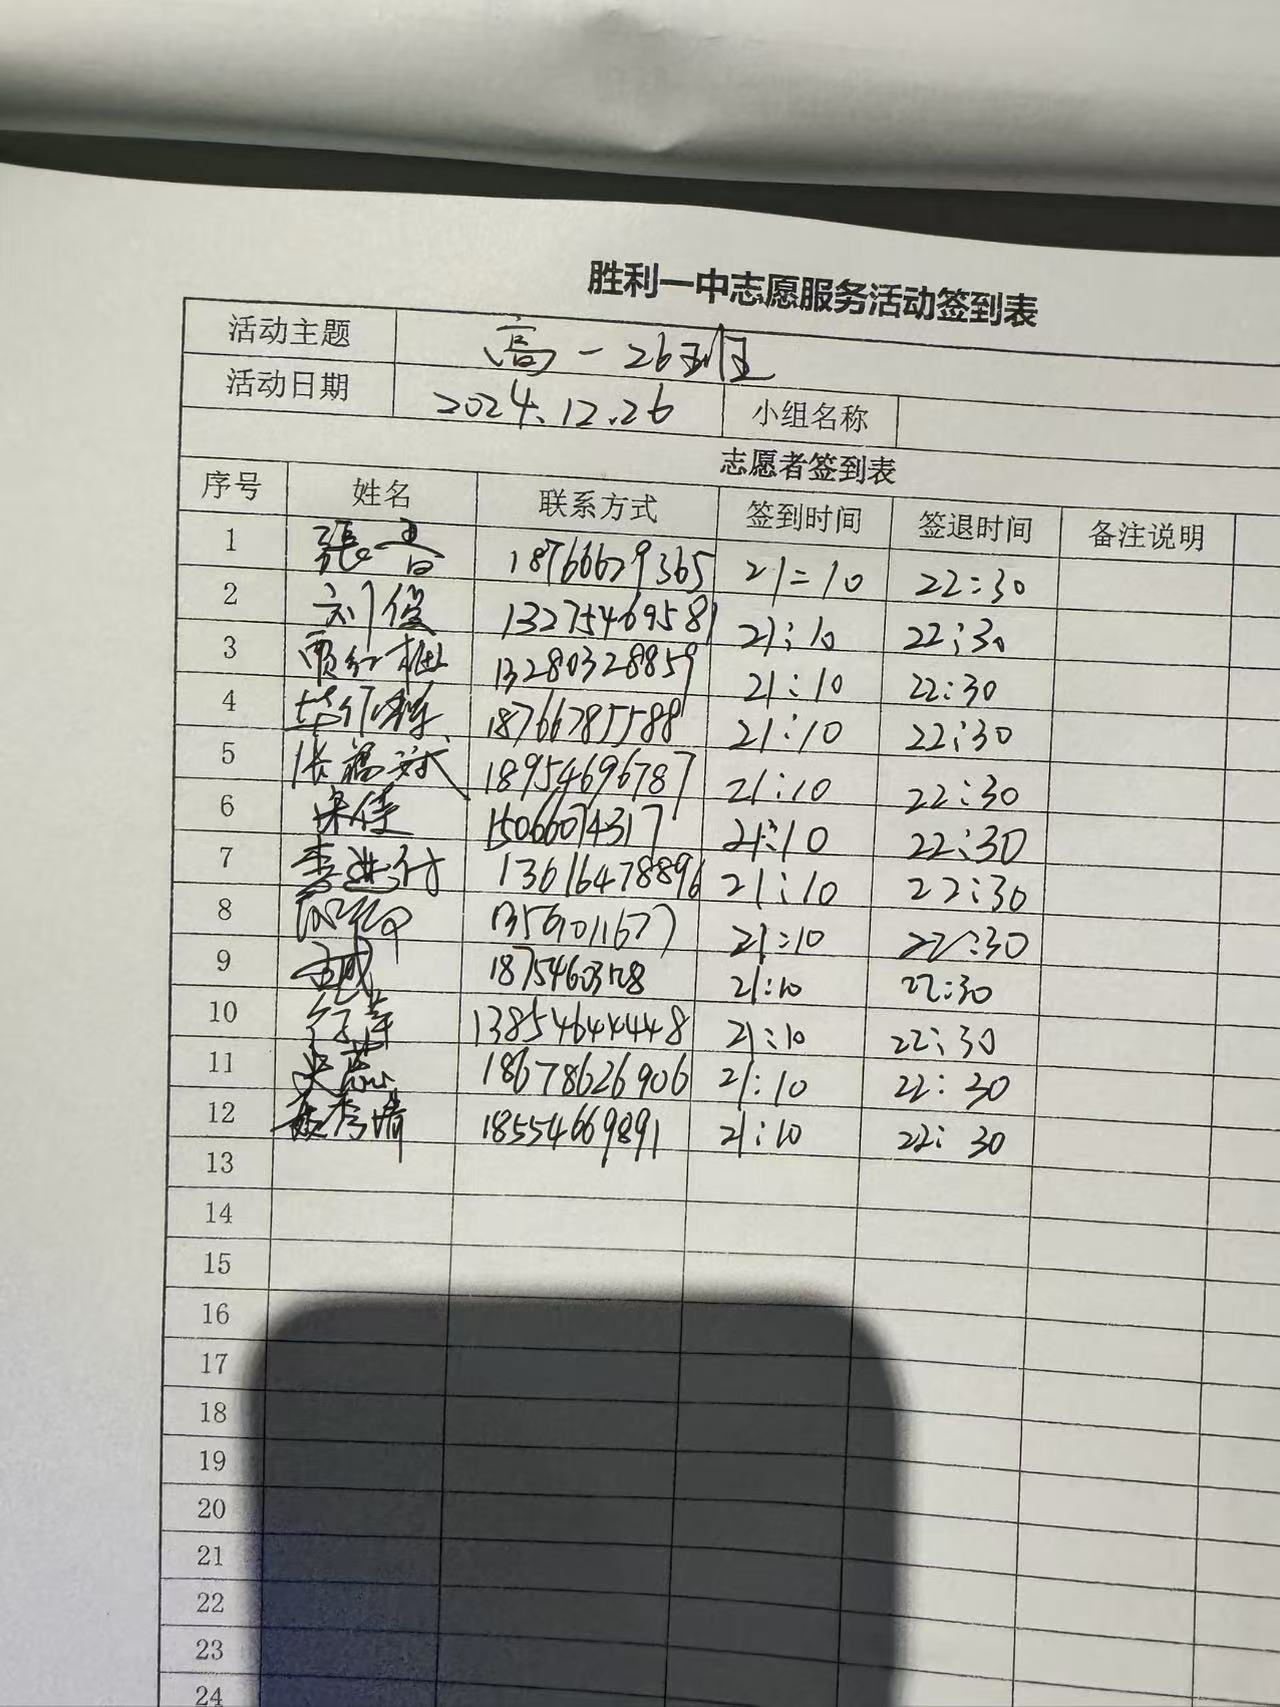 胜利一中志愿服务活动签到表
活动主题 高一26班
活动日期 2024.12.26 小组名称
志愿者签到表
序号 姓名 联系方式 签到时间 签退时间 备注说明
1 18766679365 21:10 22:30
2 刘俊 13275469581 21:10 22:30
3 13280328859 21:10 22:30
4 18766785588 21:10 22:30
5 18954696787 21:10 22:30
6 宋佳 15066074317 21:10 22:30
7 李进行 13616478896 21:10 22:30
8 21:10 22:30
9 21:10 22:30
10 13854644448 21:10 22:30
11 18678626906 21:10 22:30
12 18554669891 21:10 22:30
13
14
15
16
17
18
19
20
21
22
23
24